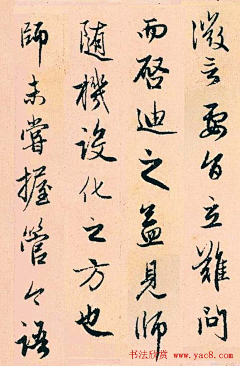 微言要旨立難問
而啓迪之益見師
隨機設化之方也
師未嘗握管令語
书法欣赏
www.yac8.com